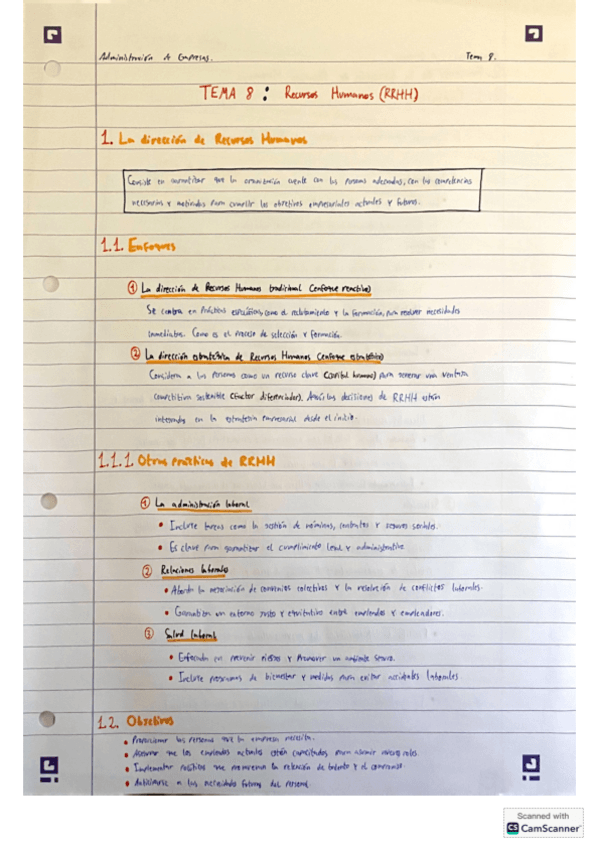 Administración de Empresas.
Tema 8.
TEMA 8: Recursos Humanos (RRHH)
1. La dirección de Recursos Humanos
Consiste en garantizar que la organización cuente con las personas adecuadas, con las competencias
necesarias y motivadas para cumplir los objetivos empresariales actuales y futuros.
1.1. Enfoques
① La dirección de Recursos Humanos tradicional (enfoque reactivo)
Se centra en prácticas específicas, como el reclutamiento y la formación, para resolver necesidades
inmediatas. Como es el proceso de selección y formación.
② La dirección estratégica de Recursos Humanos (enfoque estratégico)
Considera a las personas como un recurso clave (capital humano) para generar una ventaja
competitiva sostenible (factor diferenciador). Aquí las decisiones de RRHH están
integradas en la estrategia empresarial desde el inicio.
1.1.1 Otras prácticas de RRHH
① La administración laboral
• Incluye tareas como la gestión de nóminas, contratos y seguros sociales.
• Es clave para garantizar el cumplimiento legal y administrativo
② Relaciones laborales
• Aborda la negociación de convenios colectivos y la resolución de conflictos laborales.
• Garantiza un entorno justo y equitativo entre empleados y empleadores.
③ Salud laboral
• Enfocada en prevenir riesgos y promover un ambiente seguro.
• Incluye programas de bienestar y medidas para evitar accidentes laborales.
1.2. Objetivos
• Proporcionar las personas que la empresa necesita.
• Asegurar que los empleados actuales están capacitados para asumir nuevos roles
• Implementar políticas que promuevan la retención de talento y el compromiso.
• Anticiparse a las necesidades futuras del personal.
Scanned with
CS CamScanner